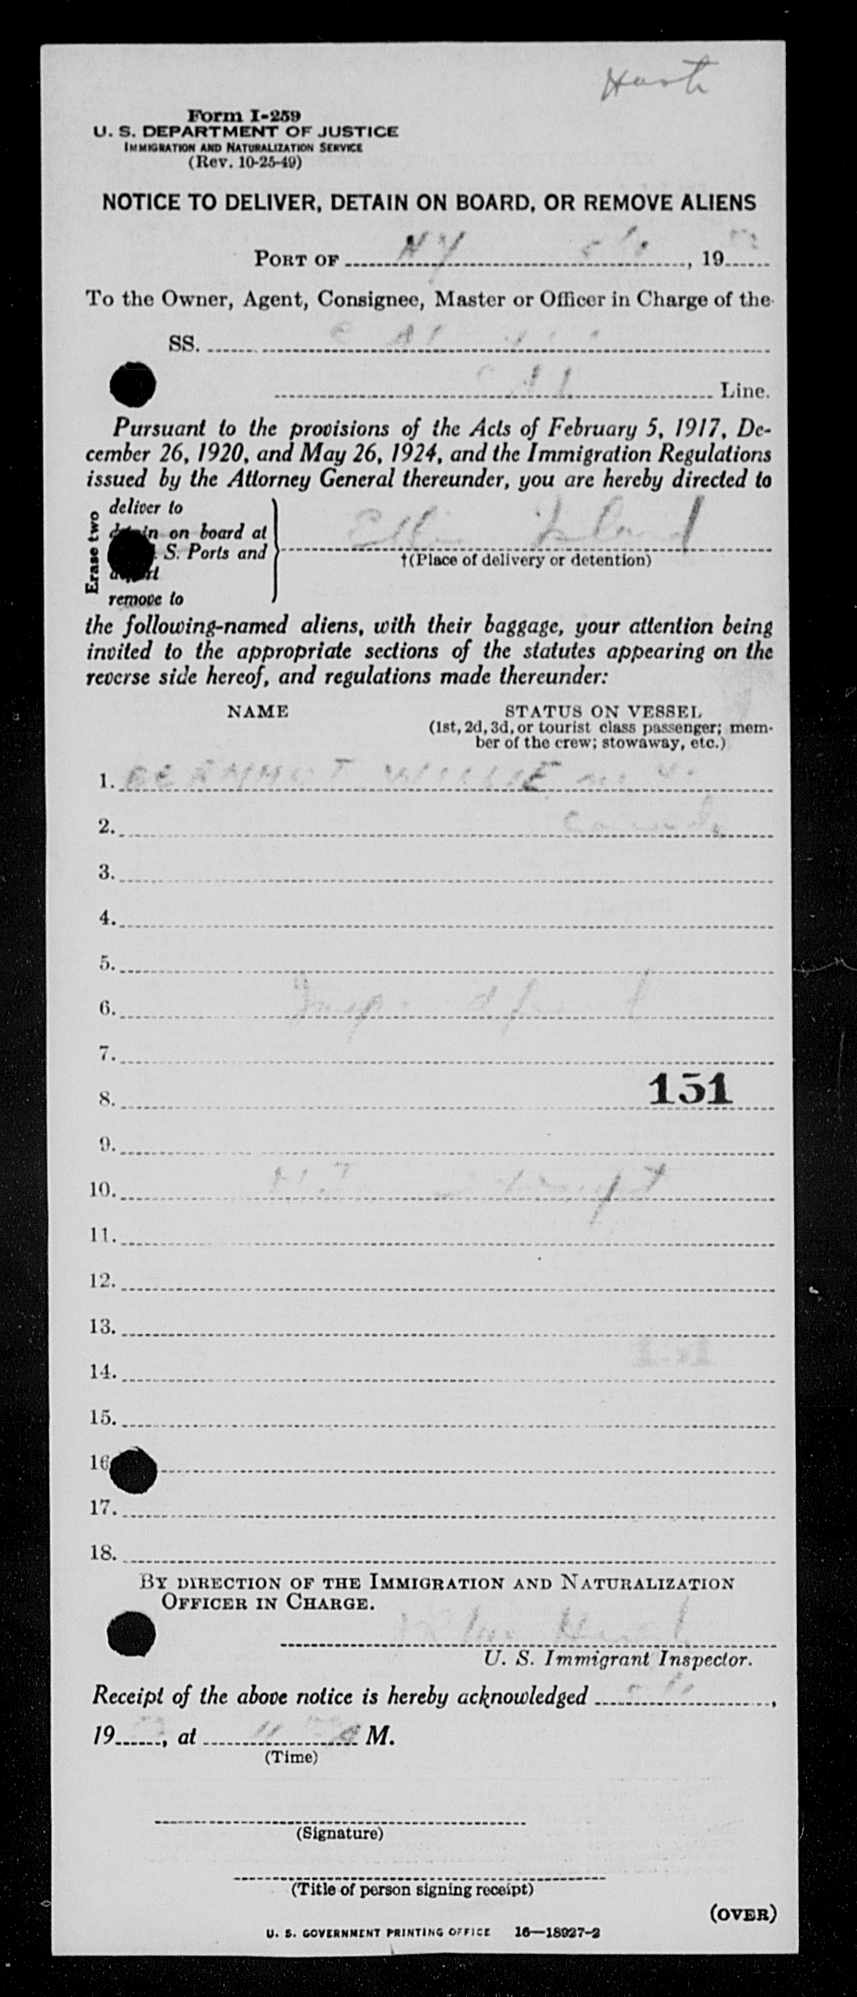 Form I-259
U. S. DEPARTMENT OF JUSTICE
IMMIGRATION AND NATURALIZATION SERVICE
(Rev. 10-25-49)
NOTICE TO DELIVER, DETAIN ON BOARD, OR REMOVE ALIENS
PORT OF NY , 19
To the Owner, Agent, Consignee, Master or Officer in Charge of the
SS.
Line.
Pursuant to the provisions of the Acts of February 5, 1917, De-
cember 26, 1920, and May 26, 1924, and the Immigration Regulations
issued by the Attorney General thereunder, you are hereby directed to
Erase two
deliver to
on board at
S. Ports and
remove to
Ellis Island
†(Place of delivery or detention)
the following-named aliens, with their baggage, your attention being
invited to the appropriate sections of the statutes appearing on the
reverse side hereof, and regulations made thereunder:
NAME STATUS ON VESSEL
(1st, 2d, 3d, or tourist class passenger; mem-
ber of the crew; stowaway, etc.)
1. WILLIE
2.
3.
4.
5.
6.
7.
8. 151
9.
10.
11.
12.
13.
14.
15.
16
17.
18.
BY DIRECTION OF THE IMMIGRATION AND NATURALIZATION
OFFICER IN CHARGE.
U. S. Immigrant Inspector.
Receipt of the above notice is hereby acknowledged ,
19 , at M.
(Time)
(Signature)
(Title of person signing receipt)
(OVER)
U. S. GOVERNMENT PRINTING OFFICE 16—18927-2